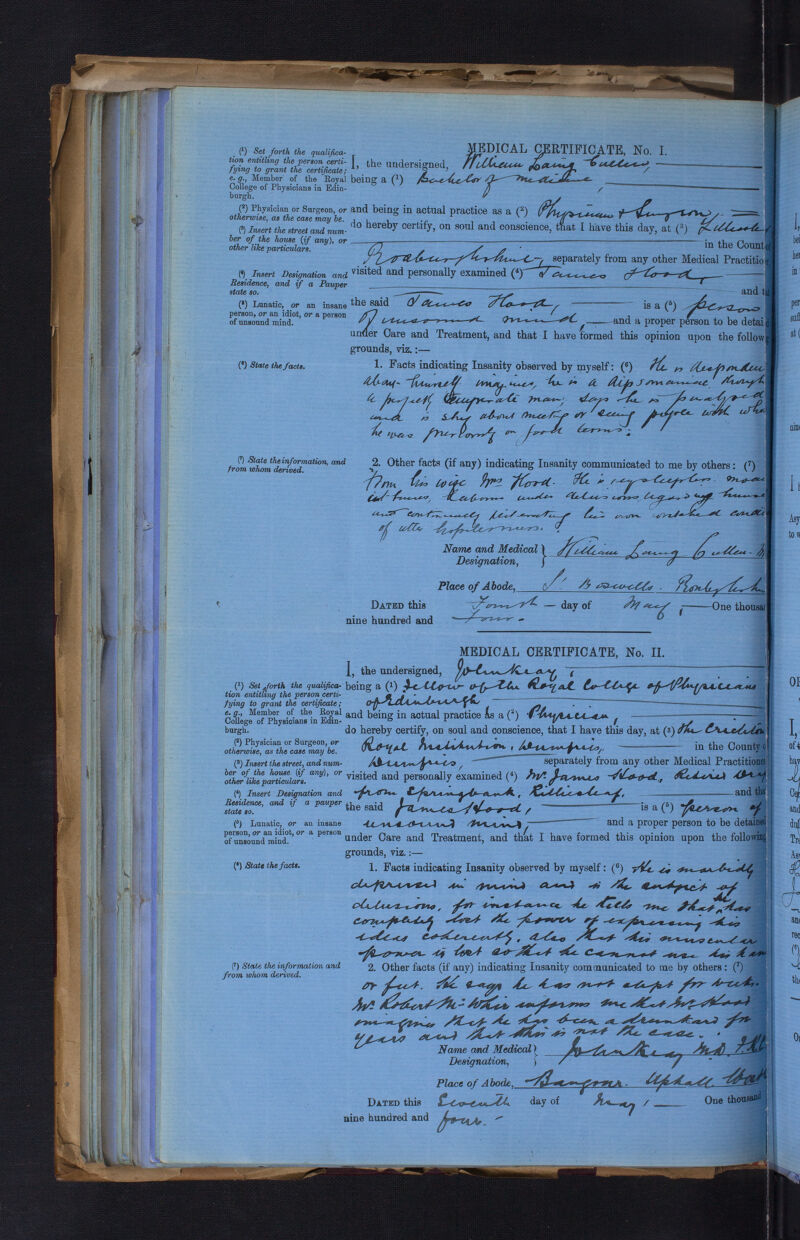 MEDICAL CERTIFICATE, No. I.
(¹) Set forth the qualifica-
tion entitling the person certi-
fying to grant the certificate;
e.g., Member of the Royal
College of Physicians in Edin-
burgh.
I, the undersigned, William Laing Cullen,
being a (¹) Bachelor of Medicine,
(²) Physician or Surgeon, or
otherwise, as the case may be.
and being in actual practice as a (²) Physician & Surgeon,
(³) Insert the street and num-
ber of the house (if any), or
other like particulars.
do hereby certify, on soul and conscience, that I have this day, at (³) Lilliesle
in the Count
Roxburghshire, separately from any other Medical Practitio
(⁴) Insert Designation and
Residence, and if a Pauper
state so.
visited and personally examined (⁴) James Hood,
and
(⁵) Lunatic, or an insane
person, or an idiot, or a person
of unsound mind.
the said James Hood, is a (⁵) person
of unsound mind, and a proper person to be detai
under Care and Treatment, and that I have formed this opinion upon the follow
grounds, viz.:—
(⁶) State the facts.
1. Facts indicating Insanity observed by myself: (⁶) He is desponden
about himself imagines, he is a dipsomaniac though
a perfectly temperate man; says he is paralysed
and is shy about meeting or seeing people with
he was previously on good terms.
(⁷) State the information, and
from whom derived.
2. Other facts (if any) indicating Insanity communicated to me by others: (⁷)
From his wife Mrs Hood. He is sleepless
at times, labours under delusions regarding
and continually reiterating his own wretched condi
of utter hopelessness.
Name and Medical
Designation,
William Laing Cullen
Place of Abode, St Boswells. Roxburghsh
DATED this Fourth day of May, One thousa
nine hundred and four.
MEDICAL CERTIFICATE, No. II.
(¹) Set forth the qualifica-
tion entitling the person certi-
fying to grant the certificate;
e.g., Member of the Royal
College of Physicians in Edin-
burgh.
I, the undersigned, John Keay,
being a (¹) Fellow of the Royal College of Physicians
of Edinburgh
(²) Physician or Surgeon, or
otherwise, as the case may be.
and being in actual practice as a (²) Physician,
(³) Insert the street, and num-
ber of the house (if any), or
other like particulars.
do hereby certify, on soul and conscience, that I have this day, at (³) the Crichton
Royal Institution, Dumfries, in the County
Dumfries, separately from any other Medical Practitione
(⁴) Insert Designation and
Residence, and if a pauper
state so.
visited and personally examined (⁴) Mr. James Hood, Retired
from Springbank, Lilliesleaf, and th
(⁵) Lunatic, or an insane
person, or an idiot, or a person
of unsound mind.
the said James Hood, is a (⁵) person of
unsound mind, and a proper person to be detaine
under Care and Treatment, and that I have formed this opinion upon the following
grounds, viz.:—
(⁶) State the facts.
1. Facts indicating Insanity observed by myself: (⁶) He is morbidly
depressed in mind and is the subject of
delusions, for instance he tells me that he has
completely lost the power of expressing his
ideas coherently, also that his muscular
power is lost so that he cannot use his han
(⁷) State the information and
from whom derived.
2. Other facts (if any) indicating Insanity communicated to me by others: (⁷)
or feet. He says he has not slept for weeks.
Mr. Robert informs me that Mr Hood
imagines that he has been a drunkard for
years and that this is not the case.
Name and Medical
Designation,
John Keay M.D.
Place of Abode, Bangour. Uphall
DATED this Eleventh day of May, One thousand
nine hundred and four.